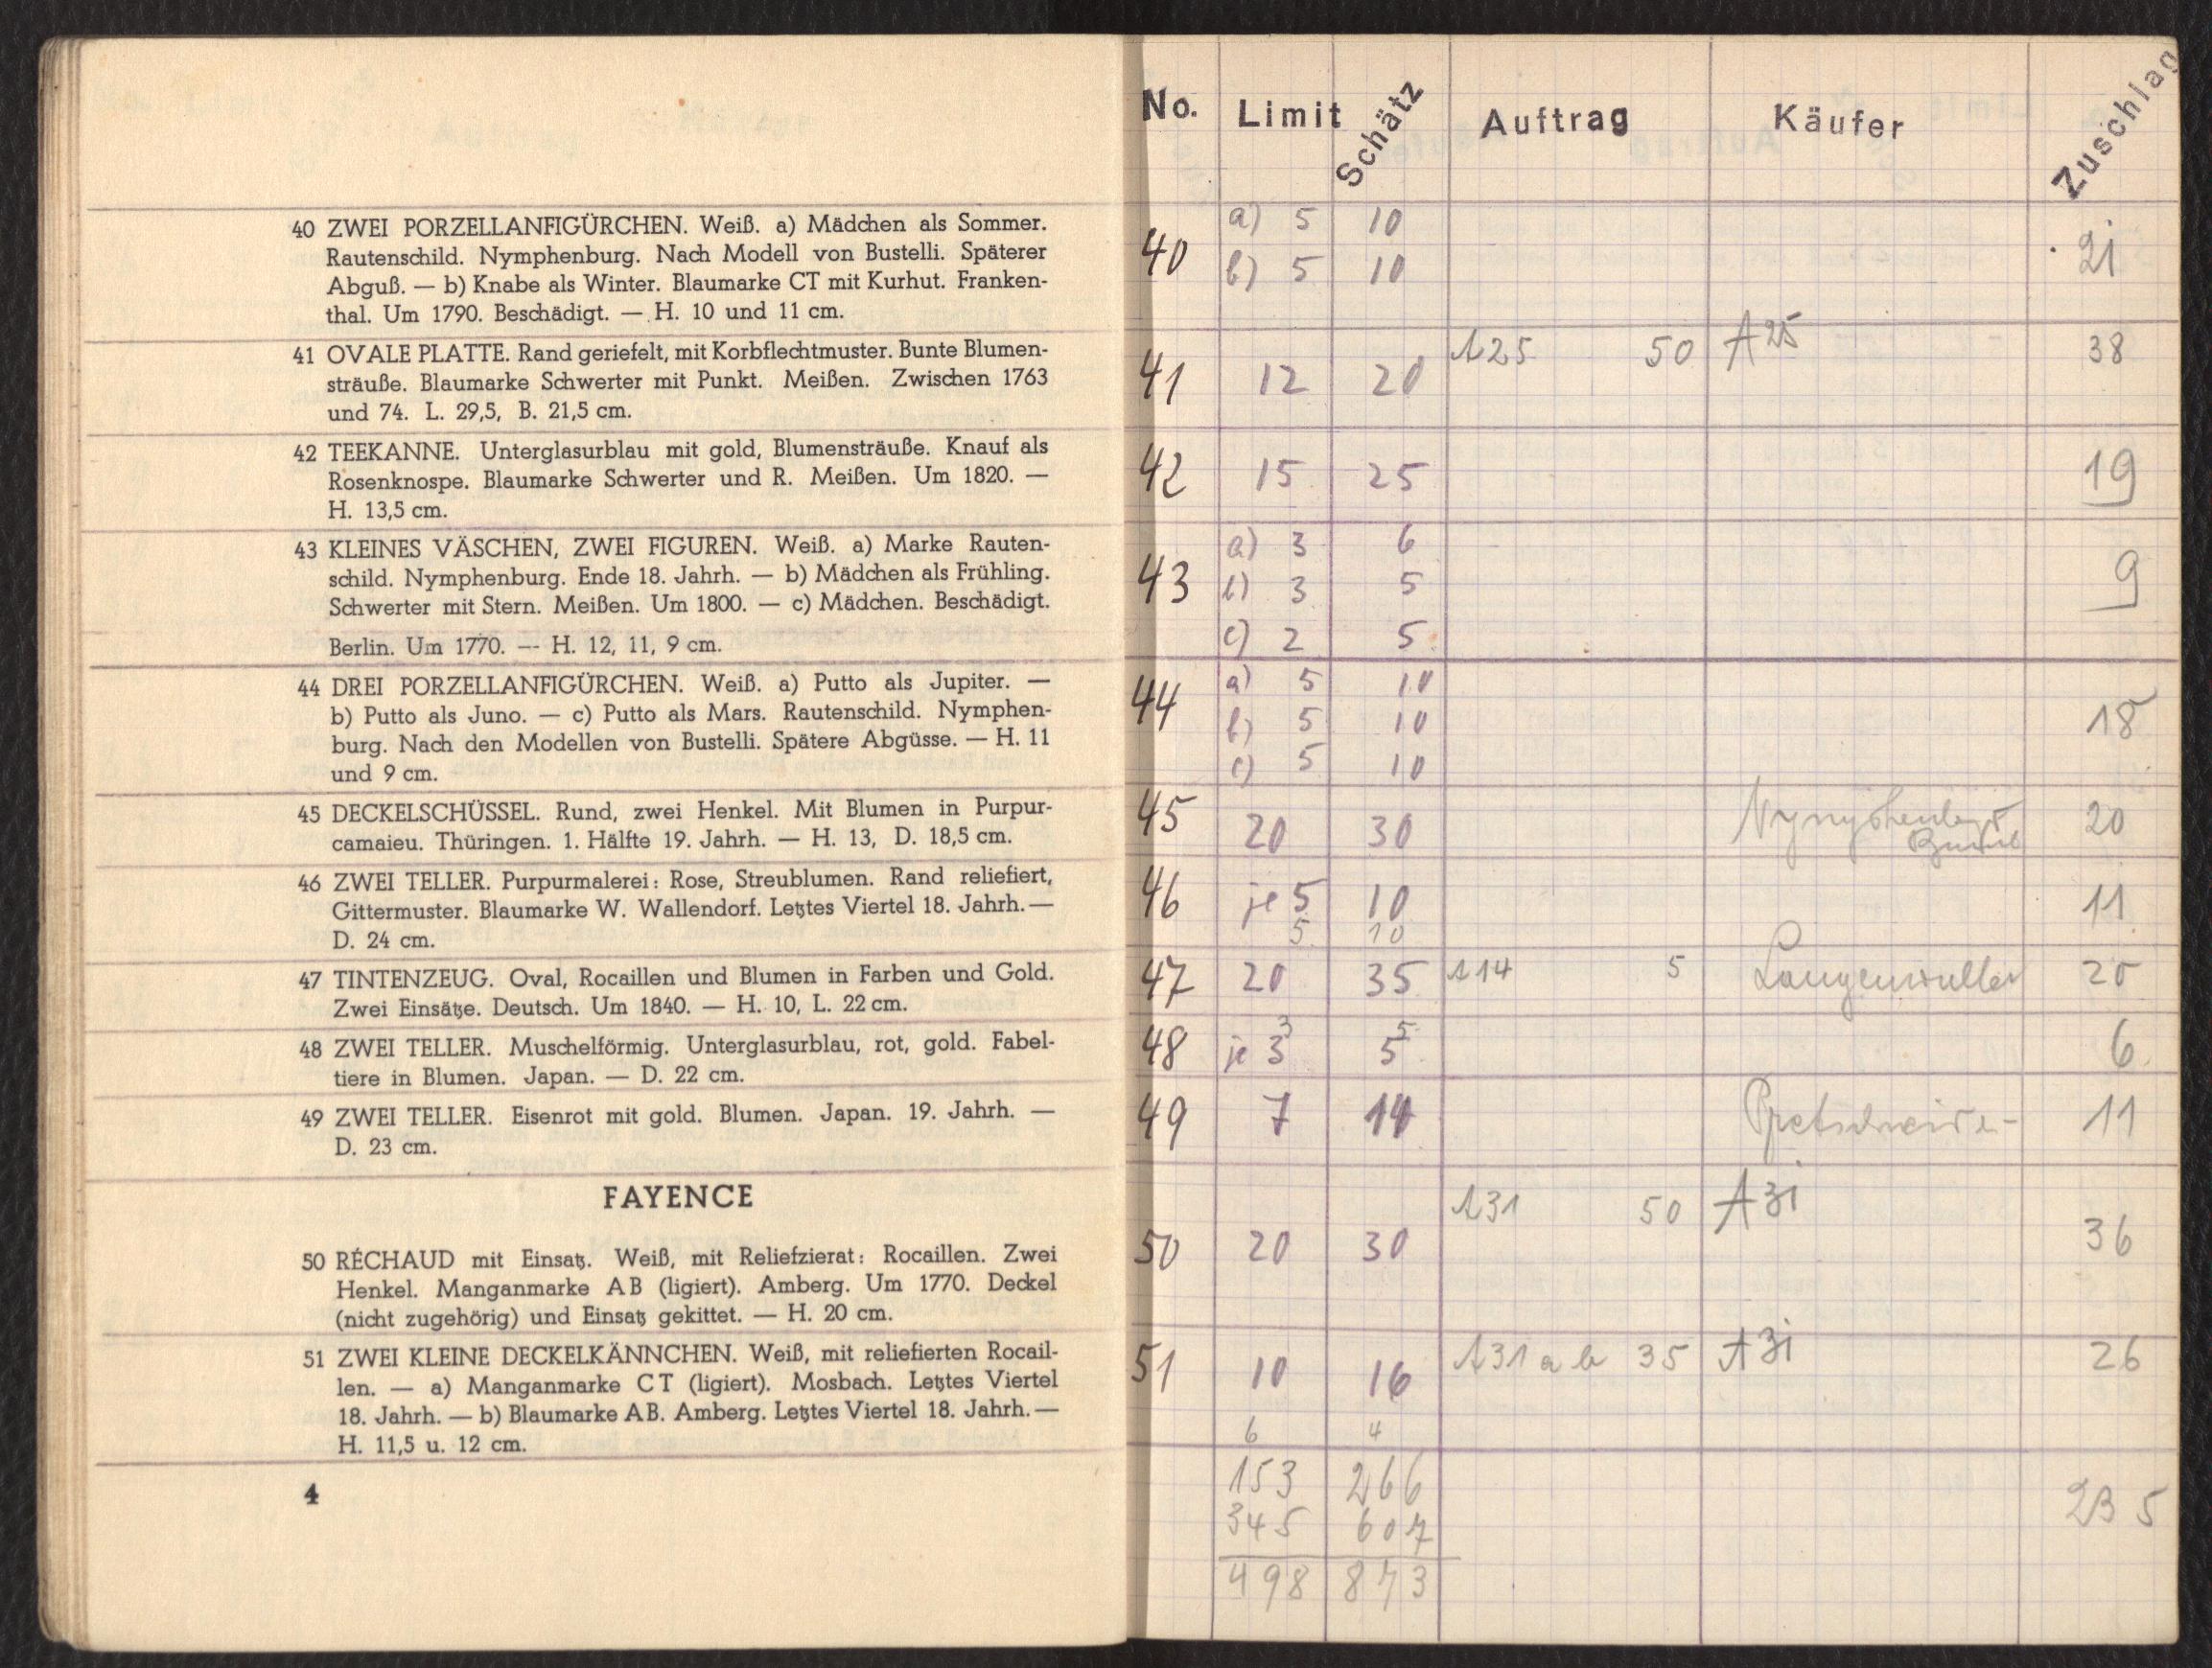 40 ZWEI PORZELLANFIGÜRCHEN. Weiß. a) Mädchen als Sommer.
Rautenschild. Nymphenburg. Nach Modell von Bustelli. Späterer
Abguß. — b) Knabe als Winter. Blaumarke CT mit Kurhut. Franken-
thal. Um 1790. Beschädigt. — H. 10 und 11 cm.
41 OVALE PLATTE. Rand geriefelt, mit Korbflechtmuster. Bunte Blumen-
sträuße. Blaumarke Schwerter mit Punkt. Meißen. Zwischen 1763
und 74. L. 29,5, B. 21,5 cm.
42 TEEKANNE. Unterglasurblau mit gold, Blumensträuße. Knauf als
Rosenknospe. Blaumarke Schwerter und R. Meißen. Um 1820. —
H. 13,5 cm.
43 KLEINES VÄSCHEN, ZWEI FIGUREN. Weiß. a) Marke Rauten-
schild. Nymphenburg. Ende 18. Jahrh. — b) Mädchen als Frühling.
Schwerter mit Stern. Meißen. Um 1800. — c) Mädchen. Beschädigt.
Berlin. Um 1770. — H. 12, 11, 9 cm.
44 DREI PORZELLANFIGÜRCHEN. Weiß. a) Putto als Jupiter. —
b) Putto als Juno. — c) Putto als Mars. Rautenschild. Nymphen-
burg. Nach den Modellen von Bustelli. Spätere Abgüsse. — H. 11
und 9 cm.
45 DECKELSCHÜSSEL. Rund, zwei Henkel. Mit Blumen in Purpur-
camaieu. Thüringen. 1. Hälfte 19. Jahrh. — H. 13, D. 18,5 cm.
46 ZWEI TELLER. Purpurmalerei: Rose, Streublumen. Rand reliefiert,
Gittermuster. Blaumarke W. Wallendorf. Letztes Viertel 18. Jahrh. —
D. 24 cm.
47 TINTENZEUG. Oval, Rocaillen und Blumen in Farben und Gold.
Zwei Einsätze. Deutsch. Um 1840. — H. 10, L. 22 cm.
48 ZWEI TELLER. Muschelförmig. Unterglasurblau, rot, gold. Fabel-
tiere in Blumen. Japan. — D. 22 cm.
49 ZWEI TELLER. Eisenrot mit gold. Blumen. Japan. 19. Jahrh. —
D. 23 cm.
FAYENCE
50 RÉCHAUD mit Einsatz. Weiß, mit Reliefzierat: Rocaillen. Zwei
Henkel. Manganmarke AB (ligiert). Amberg. Um 1770. Deckel
(nicht zugehörig) und Einsatz gekittet. — H. 20 cm.
51 ZWEI KLEINE DECKELKÄNNCHEN. Weiß, mit reliefierten Rocail-
len. — a) Manganmarke CT (ligiert). Mosbach. Letztes Viertel
18. Jahrh. — b) Blaumarke AB. Amberg. Letztes Viertel 18. Jahrh. —
H. 11,5 u. 12 cm.
4
No. Limit Schätz Auftrag Käufer Zuschlag
40 a) 5 10 21
b) 5 10
41 12 20 A25 50 A25 38
42 15 25 19
43 a) 3 6 9
b) 3 5
c) 2 5
44 a) 5 10 18
b) 5 10
c) 5 10
45 20 30 20
46 je 5 10 11
5 10
47 20 35 A14 5 20
48 je 3 5 6
3 5
49 7 14 11
50 20 30 A31 50 A31 36
51 10 16 A31 a b 35 A31 26
6 4
153 266 235
345 607
498 873